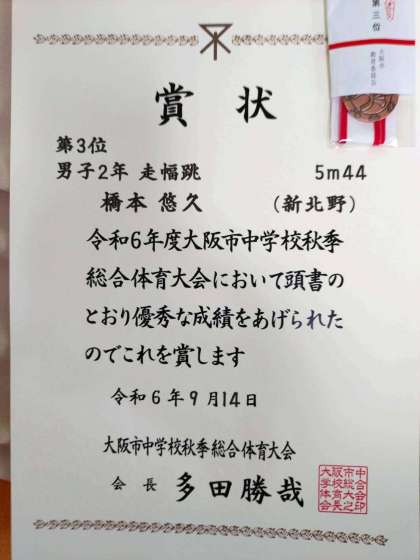 賞状
第3位
男子2年 走幅跳 5m44
橋本 悠久 (新北野)
令和6年度大阪市中学校秋季
総合体育大会において頭書の
とおり優秀な成績をあげられた
のでこれを賞します
令和6年9月14日
大阪市中学校秋季総合体育大会
会長 多田勝哉
第三位